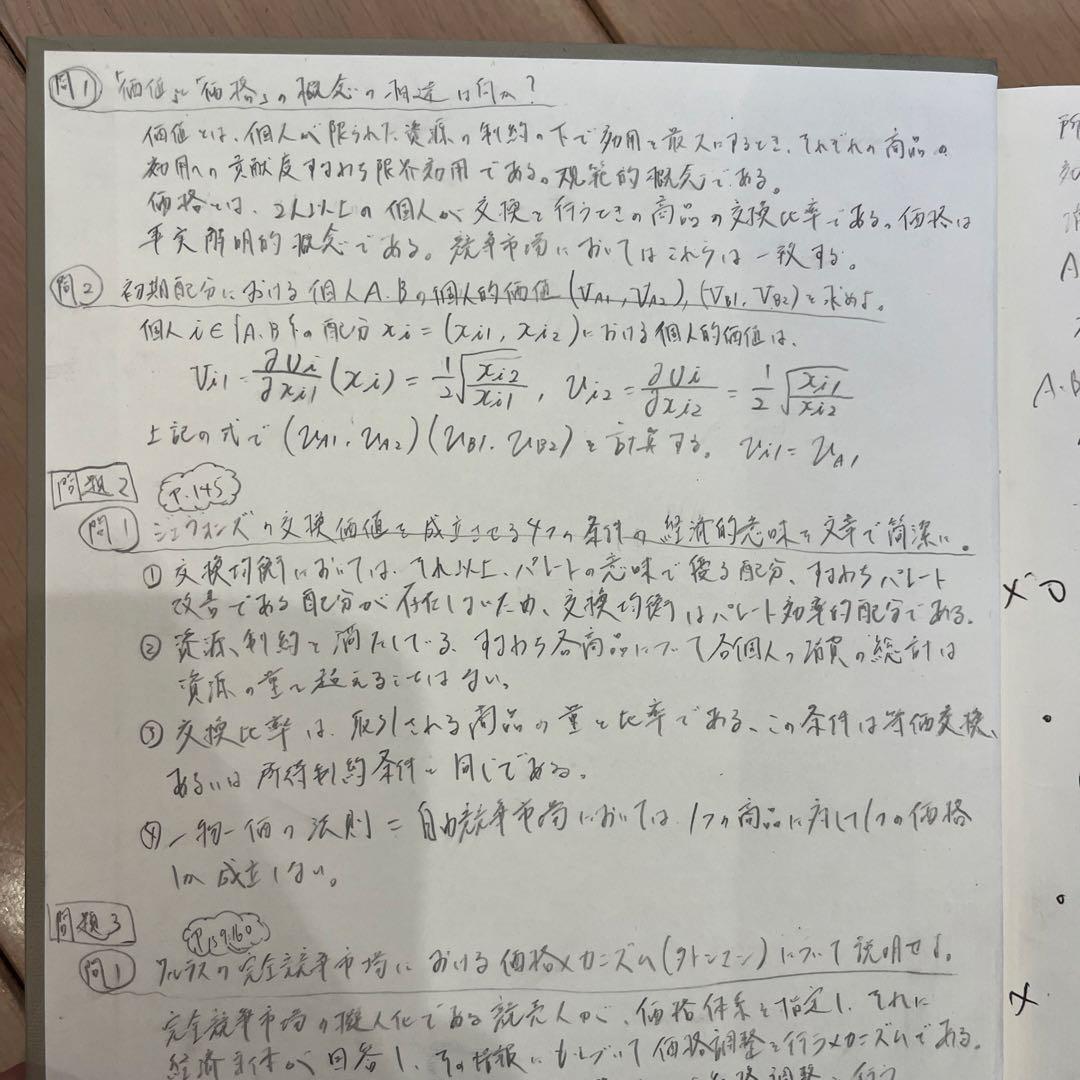 問1 「価値」と「価格」の概念の相違は何か?
価値とは、個人が限られた資源の制約の下で効用を最大にするとき、それぞれの商品の
効用への貢献度すなわち限界効用である。規範的概念である。
価格とは、2人以上の個人が交換を行うときの商品の交換比率である。価格は
事実解明的概念である。競争市場においてはこれらは一致する。
問2 初期配分における個人A.Bの個人的価値(VA1, VA2), (VB1, VB2)を求めよ。
個人 i∈{A.B}の配分 xi = (xi1, xi2)における個人的価値は、
Vi1 = ∂Ui/∂xi1 (xi) = 1/2 √(xi2/xi1) , Vi2 = ∂Ui/∂xi2 = 1/2 √(xi1/xi2)
上記の式で (VA1, VA2) (VB1. VB2) を計算する。 Vi1 = VA1
問題2 P.145
問1 ジェヴォンズの交換価値を成立させる4つの条件の経済的意味を文章で簡潔に。
① 交換均衡においては、それ以上、パレートの意味で優る配分、すなわちパレート
改善である配分が存在しないため、交換均衡はパレート効率的配分である。
② 資源制約を満たしている、すなわち各商品について各個人の消費の総計は
資源の量を超えることはない。
③ 交換比率は、取引される商品の量と比率である、この条件は等価交換、
あるいは所得制約条件と同じである。
④ 一物一価の法則 = 自由競争市場においては、1つの商品に対して1つの価格
しか成立しない。
問題3 P.159.160
問1 ワルラスの完全競争市場における価格メカニズム(タトンマン)について説明せよ。
完全競争市場の擬人化である競売人が、価格体系を指定し、それに
経済主体が回答し、その情報にもとづいて価格調整を行うメカニズムである。
価格調整を行う
所
A
A.B
×
○
×